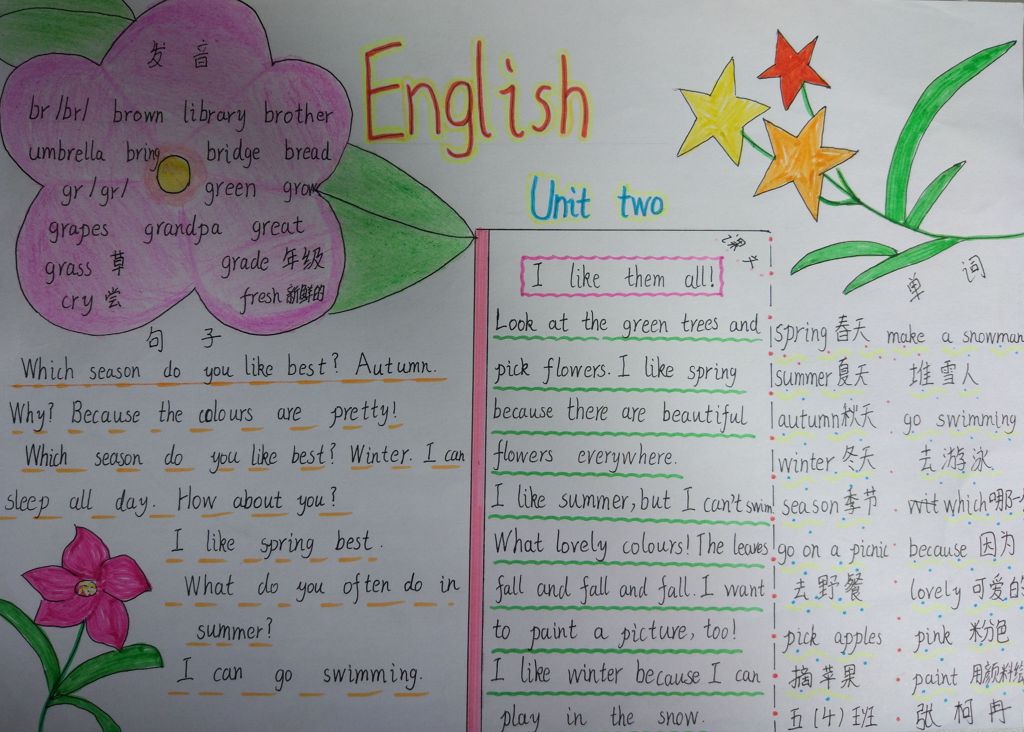 发音
br /br/ brown library brother
umbrella bring bridge bread
gr /gr/ green grow
grapes grandpa great
grass 草 grade 年级
cry 尝 fresh 新鲜的
English
Unit two
句子
Which season do you like best? Autumn.
Why? Because the colours are pretty!
Which season do you like best? Winter. I can
sleep all day. How about you?
I like spring best.
What do you often do in
summer?
I can go swimming.
课文
I like them all!
Look at the green trees and
pick flowers. I like spring
because there are beautiful
flowers everywhere.
I like summer, but I can't swim
What lovely colours! The leaves
fall and fall and fall. I want
to paint a picture, too!
I like winter because I can
play in the snow.
单词
spring 春天 make a snowman
summer 夏天 堆雪人
autumn 秋天 go swimming
winter 冬天 去游泳
season 季节 which 哪一
go on a picnic because 因为
去野餐 lovely 可爱的
pick apples pink 粉色
摘苹果 paint 用颜料绘
五(4)班 张柯冉